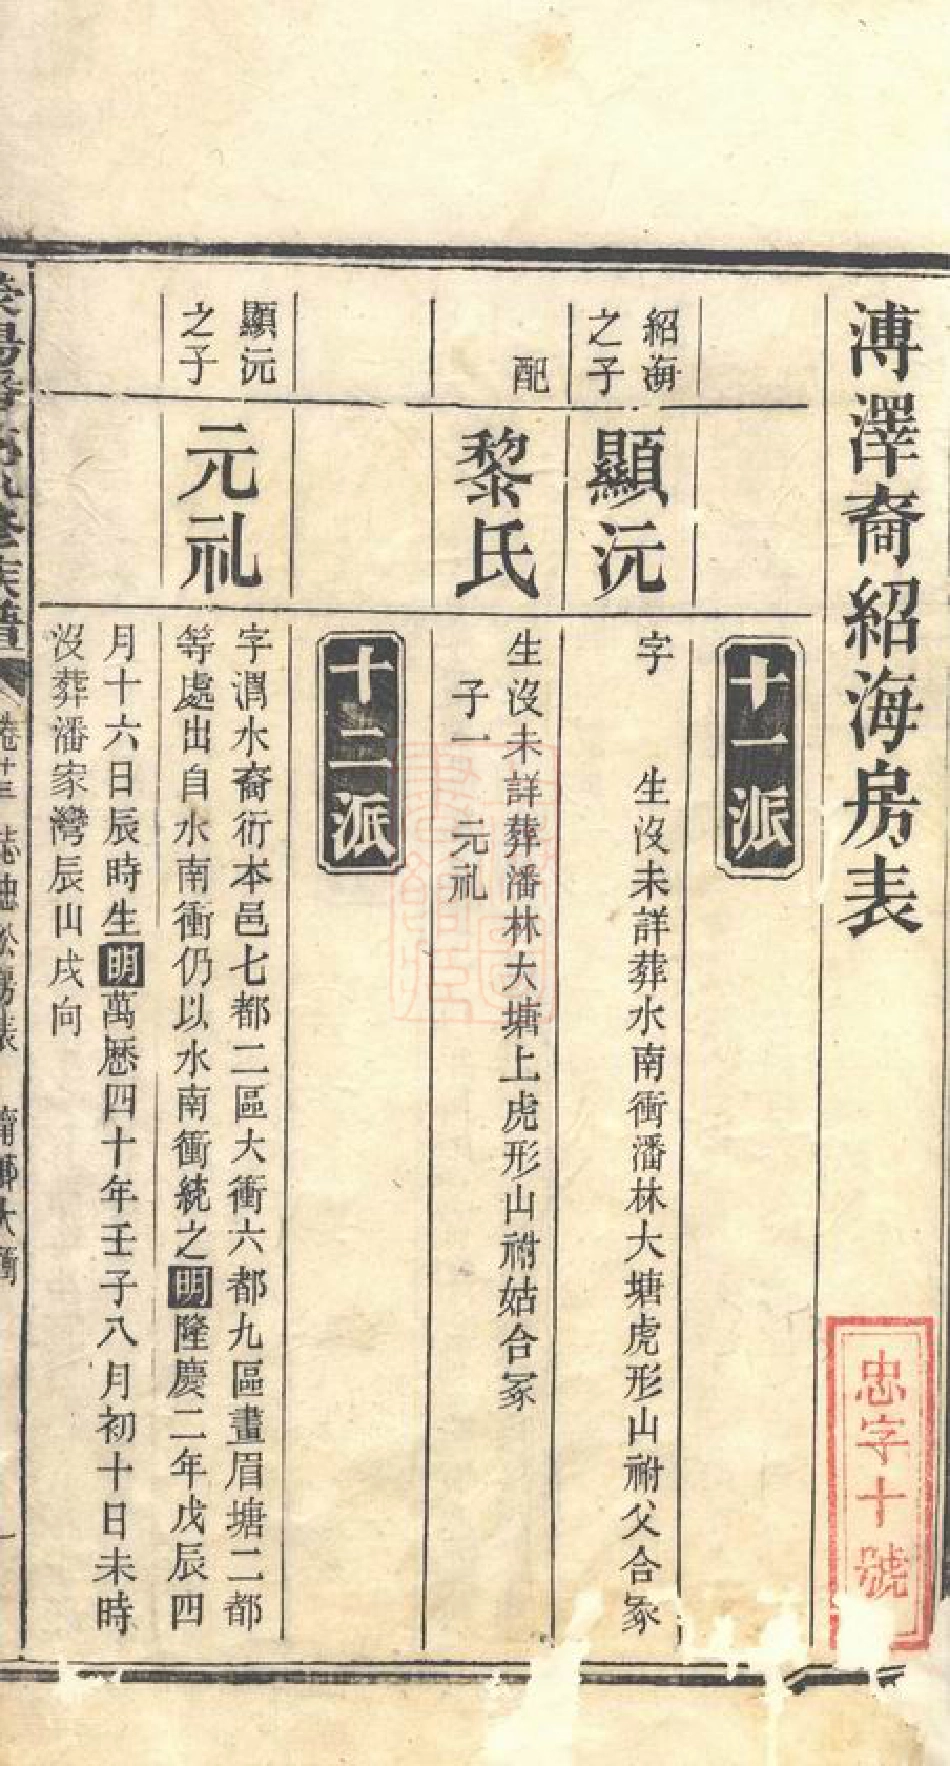 溥澤裔紹海房表
忠字十號
十一派
紹海
之子
顯沅
字 生沒未詳葬水南衝潘林大塘虎形山祔父合冢
配
黎氏
生沒未詳葬潘林大塘上虎形山祔姑合冢
子一 元礼
十二派
顯沅
之子
元礼
字潤水裔衍本邑七都二區大衝六都九區畫眉塘二都
等處出自水南衝仍以水南衝統之明隆慶二年戊辰四
月十六日辰時生明萬歷四十年壬子八月初十日未時
沒葬潘家灣辰山戌向
族譜